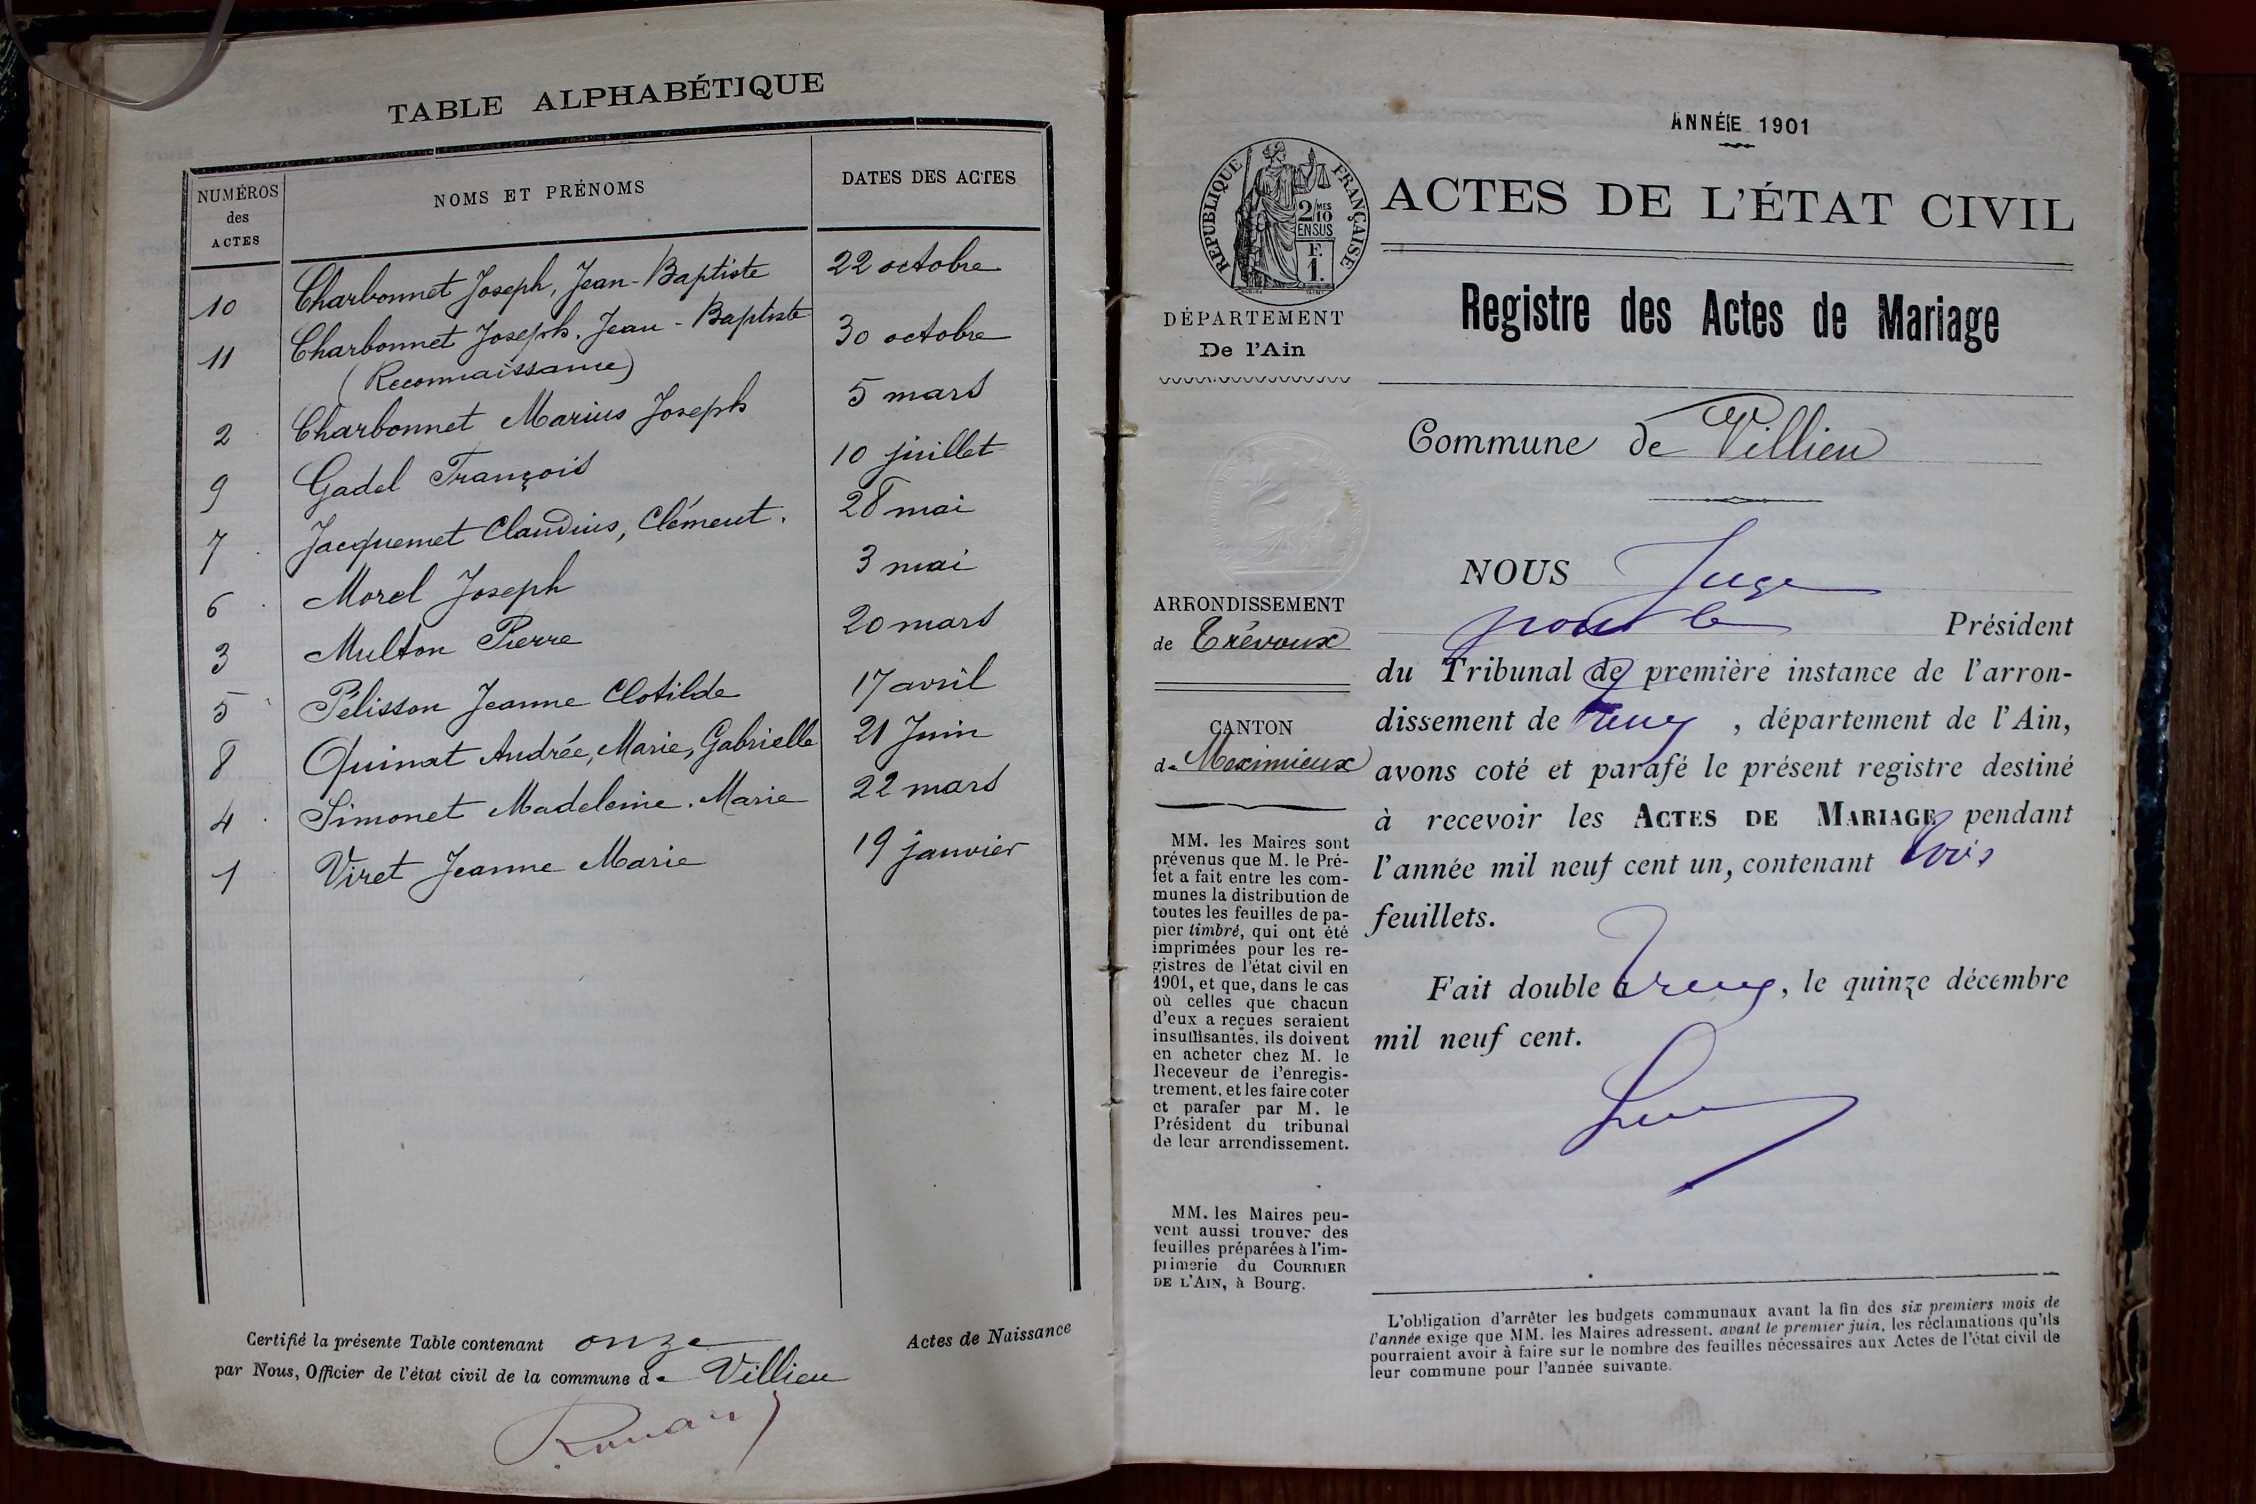 TABLE ALPHABÉTIQUE
NUMÉROS des ACTES NOMS ET PRÉNOMS DATES DES ACTES
10 Charbonnet Joseph, Jean-Baptiste 22 octobre
11 Charbonnet Joseph. Jean-Baptiste 30 octobre
(Reconnaissance)
2 Charbonnet Marius Joseph 5 mars
9 Gadel François 10 juillet
7 Jacquemet Claudius, Clément. 28 mai
6 Morel Joseph 3 mai
3 Multon Pierre 20 mars
5 Pélisson Jeanne Clotilde 17 avril
8 Quinat Andrée, Marie, Gabrielle 21 Juin
4 Simonet Madeleine. Marie 22 mars
1 Viret Jeanne Marie 19 janvier
Certifié la présente Table contenant onze Actes de Naissance
par Nous, Officier de l'état civil de la commune de Villieu
ANNÉE 1901
RÉPUBLIQUE FRANÇAISE
2/10 MES
EN SUS
F.
1.
ACTES DE L'ÉTAT CIVIL
DÉPARTEMENT
De l'Ain
Registre des Actes de Mariage
Commune de Villieu
ARRONDISSEMENT
de Trévoux
CANTON
de Meximieux
MM. les Maires sont
prévenus que M. le Pré-
fet a fait entre les com-
munes la distribution de
toutes les feuilles de pa-
pier timbré, qui ont été
imprimées pour les re-
gistres de l'état civil en
1901, et que, dans le cas
où celles que chacun
d'eux a reçues seraient
insuffisantes, ils doivent
en acheter chez M. le
Receveur de l'enregis-
trement, et les faire coter
et parafer par M. le
Président du tribunal
de leur arrondissement.
MM. les Maires peu-
vent aussi trouver des
feuilles préparées à l'im-
primerie du COURRIER
DE L'AIN, à Bourg.
NOUS Juge
pour le Président
du Tribunal de première instance de l'arron-
dissement de Trévoux, département de l'Ain,
avons coté et parafé le présent registre destiné
à recevoir les ACTES DE MARIAGE pendant
l'année mil neuf cent un, contenant trois
feuillets.
Fait double à Trévoux, le quinze décembre
mil neuf cent.
L'obligation d'arrêter les budgets communaux avant la fin des six premiers mois de
l'année exige que MM. les Maires adressent, avant le premier juin, les réclamations qu'ils
pourraient avoir à faire sur le nombre des feuilles nécessaires aux Actes de l'état civil de
leur commune pour l'année suivante.